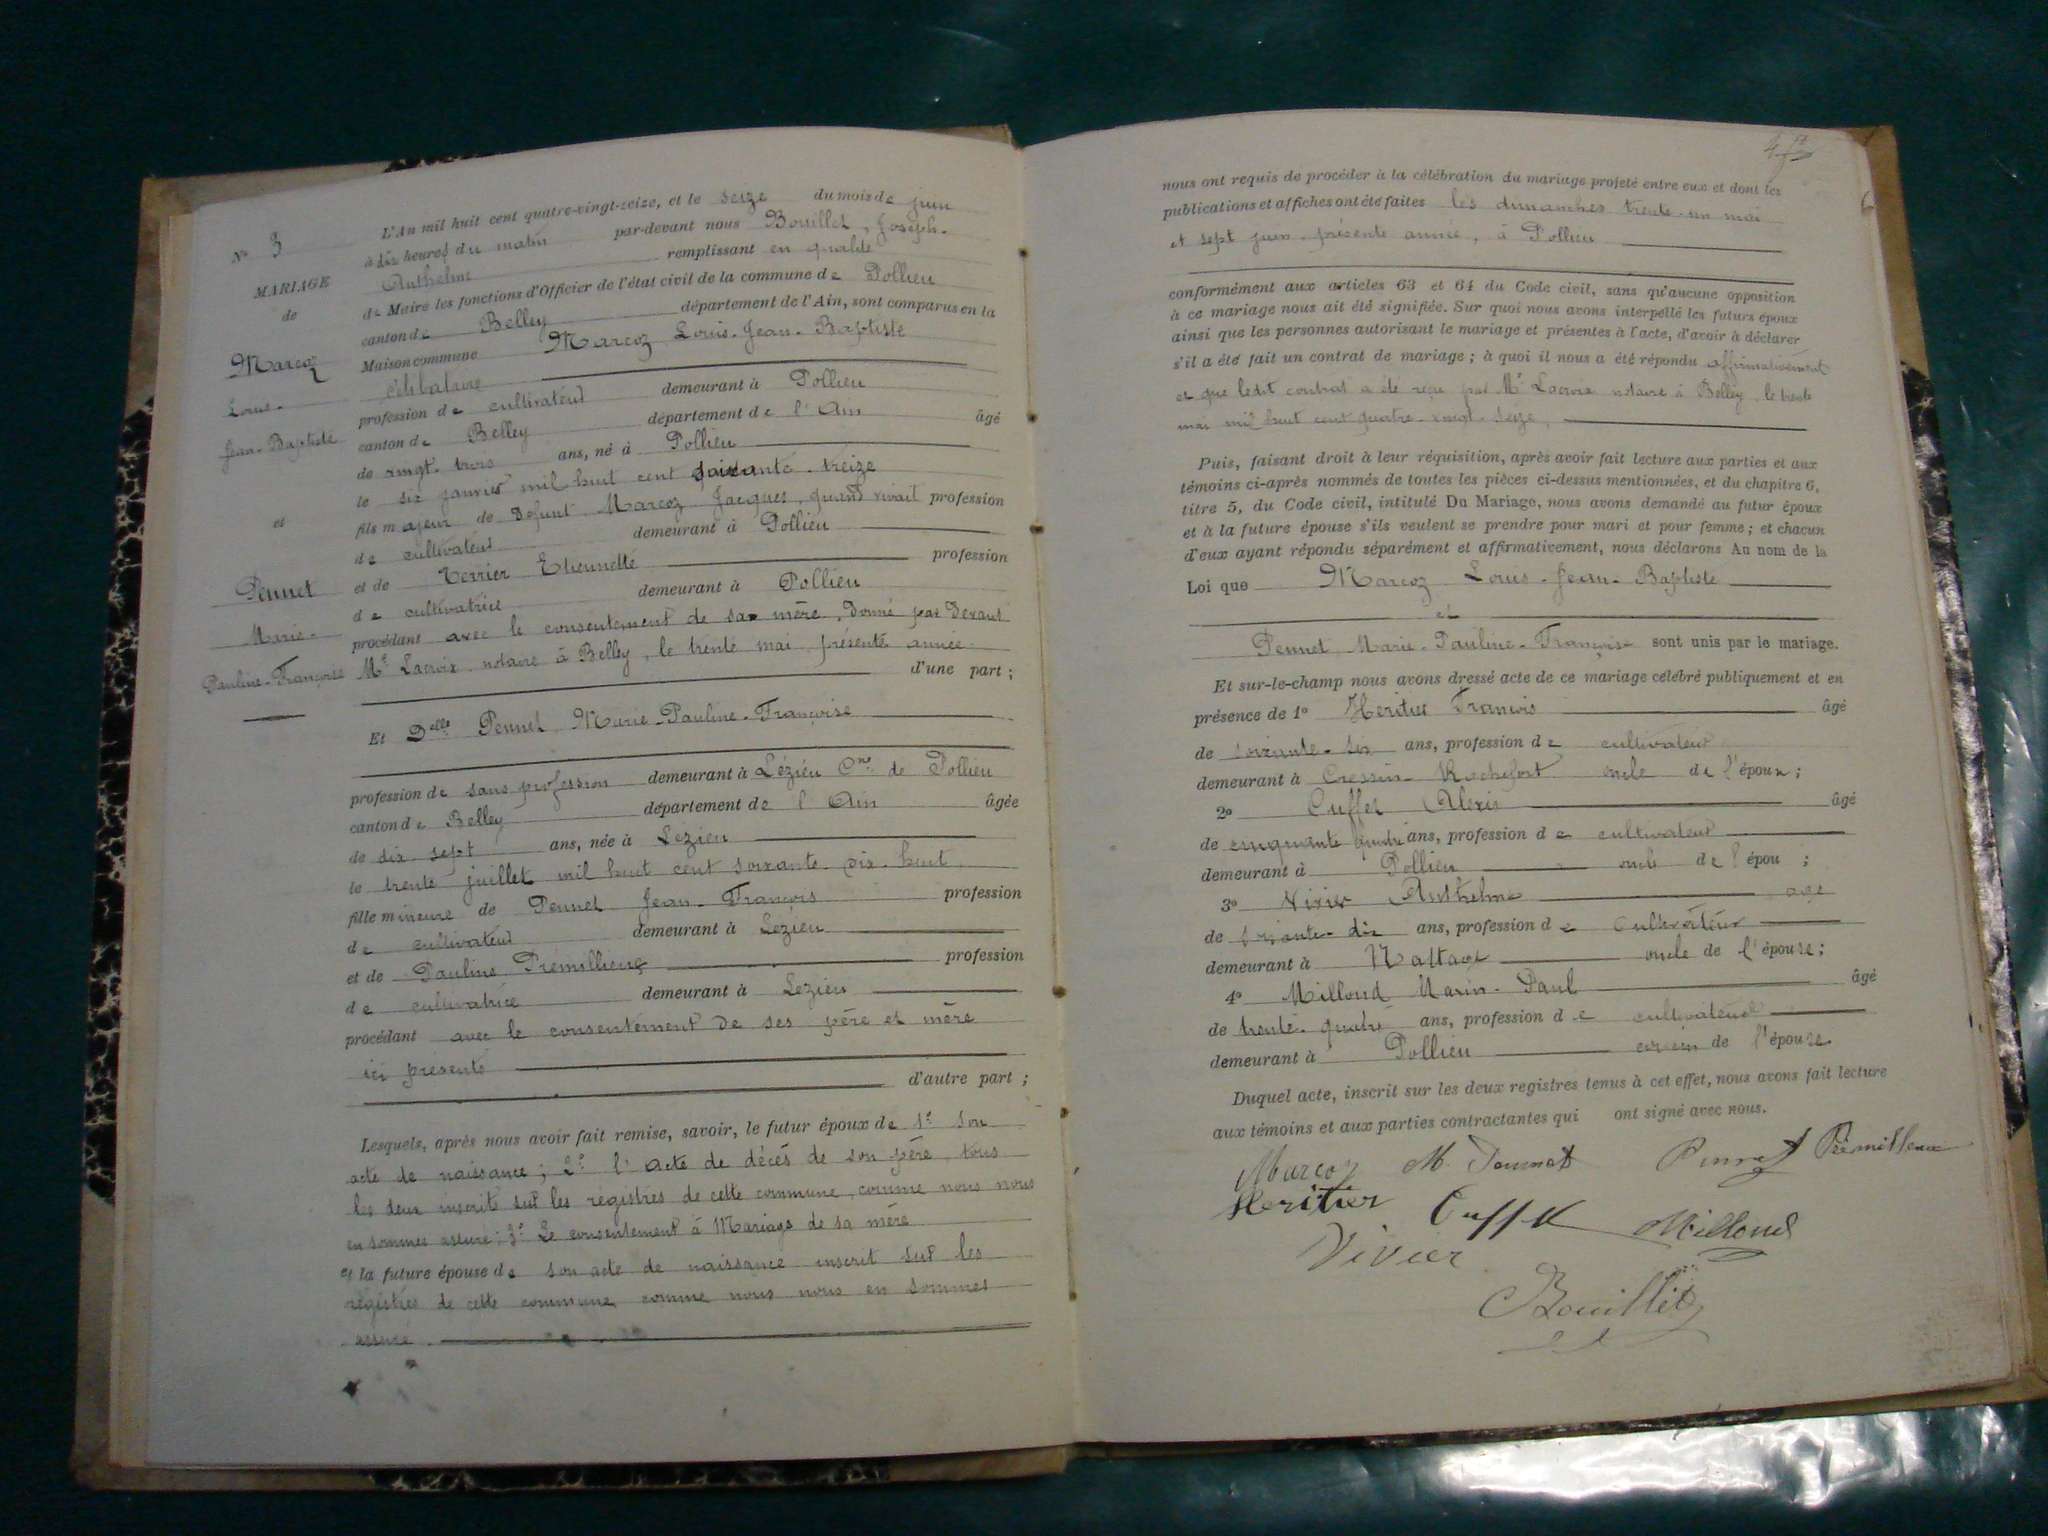 N° 3
MARIAGE
de
Marcoz
Louis-
Jean-Baptiste
et
Pennet
Marie-
Pauline-Françoise
L'An mil huit cent quatre-vingt-seize, et le seize du mois de juin
à dix heures du matin par-devant nous Bouillet, Joseph-
Anthelme remplissant en qualité
de Maire les fonctions d'Officier de l'état civil de la commune de Pollieu
canton de Belley département de l'Ain, sont comparus en la
Maison commune Marcoz Louis-Jean-Baptiste
célibataire
profession de cultivateur demeurant à Pollieu
canton de Belley département de l'Ain âgé
de vingt-trois ans, né à Pollieu
le six janvier mil huit cent soixante-treize
fils majeur de défunt Marcoz Jacques, quand vivait profession
de cultivateur demeurant à Pollieu
et de Terrier Etiennette profession
de cultivatrice demeurant à Pollieu
procédant avec le consentement de sa mère, donné par devant
Me Lacroix notaire à Belley, le trente mai présente année
d'une part ;
Et Delle Pennet Marie-Pauline-Françoise
profession de sans profession demeurant à Lézieu Cne de Pollieu
canton de Belley département de l'Ain âgée
de dix-sept ans, née à Lezieu
le trente juillet mil huit cent soixante-dix-huit
fille mineure de Pennet Jean-François profession
de cultivateur demeurant à Lezieu
et de Pauline Prémillieux profession
de cultivatrice demeurant à Lezieu
procédant avec le consentement de ses père et mère
ici présents
d'autre part ;
Lesquels, après nous avoir fait remise, savoir, le futur époux de 1° son
acte de naissance ; 2° l'acte de décès de son père, tous
les deux inscrits sur les registres de cette commune, comme nous nous
en sommes assuré ; 3° Le consentement à Mariage de sa mère
et la future épouse de son acte de naissance inscrit sur les
registres de cette commune comme nous nous en sommes
assuré.
nous ont requis de procéder à la célébration du mariage projeté entre eux et dont les
publications et affiches ont été faites les dimanches trente-un mai
et sept juin présente année, à Pollieu
conformément aux articles 63 et 64 du Code civil, sans qu'aucune opposition
à ce mariage nous ait été signifiée. Sur quoi nous avons interpellé les futurs époux
ainsi que les personnes autorisant le mariage et présentes à l'acte, d'avoir à déclarer
s'il a été fait un contrat de mariage ; à quoi il nous a été répondu affirmativement
et que ledit contrat a été reçu par Me Lacroix notaire à Belley, le trente
mai mil huit cent quatre-vingt-seize,
Puis, faisant droit à leur réquisition, après avoir fait lecture aux parties et aux
témoins ci-après nommés de toutes les pièces ci-dessus mentionnées, et du chapitre 6,
titre 5, du Code civil, intitulé Du Mariage, nous avons demandé au futur époux
et à la future épouse s'ils veulent se prendre pour mari et pour femme ; et chacun
d'eux ayant répondu séparément et affirmativement, nous déclarons Au nom de la
Loi que Marcoz Louis-Jean-Baptiste
et
Pennet Marie-Pauline-Françoise sont unis par le mariage.
Et sur-le-champ nous avons dressé acte de ce mariage célébré publiquement et en
présence de 1° Heritier François âgé
de soixante-six ans, profession de cultivateur
demeurant à Cressin-Rochefort oncle de l'époux ;
2° Cuffet Alexis âgé
de cinquante ans, profession de cultivateur
demeurant à Pollieu oncle de l'épou ;
3° Vivier Anthelme age
de soixante-dix ans, profession de cultivateur
demeurant à Nattage oncle de l'épouse ;
4° Milloud Marin-Paul âgé
de trente-quatre ans, profession de cultivateur
demeurant à Pollieu cousin de l'épouse
Duquel acte, inscrit sur les deux registres tenus à cet effet, nous avons fait lecture
aux témoins et aux parties contractantes qui ont signé avec nous.
Marcoz M. Pennet Pennet Prémillieux
Heritier Cuffet Milloud
Vivier
Bouillet